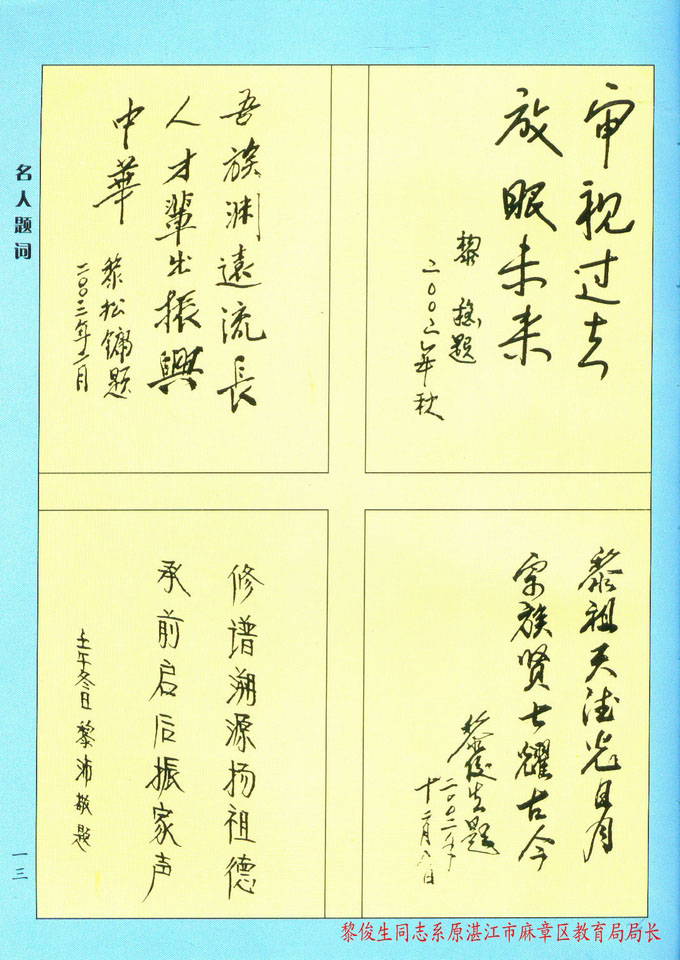 名人题词
审视过去
放眼未来
黎 题
二00二年秋
吾族渊遠流長
人才輩出振興
中華
黎松 题
二00二年十一月
黎祖天德光日月
宗族贤士耀古今
黎俊生题
二00二年
十二月八日
修谱溯源扬祖德
承前启后振家声
壬午冬日 黎沛敬题
一三
黎俊生同志系原湛江市麻章区教育局局长